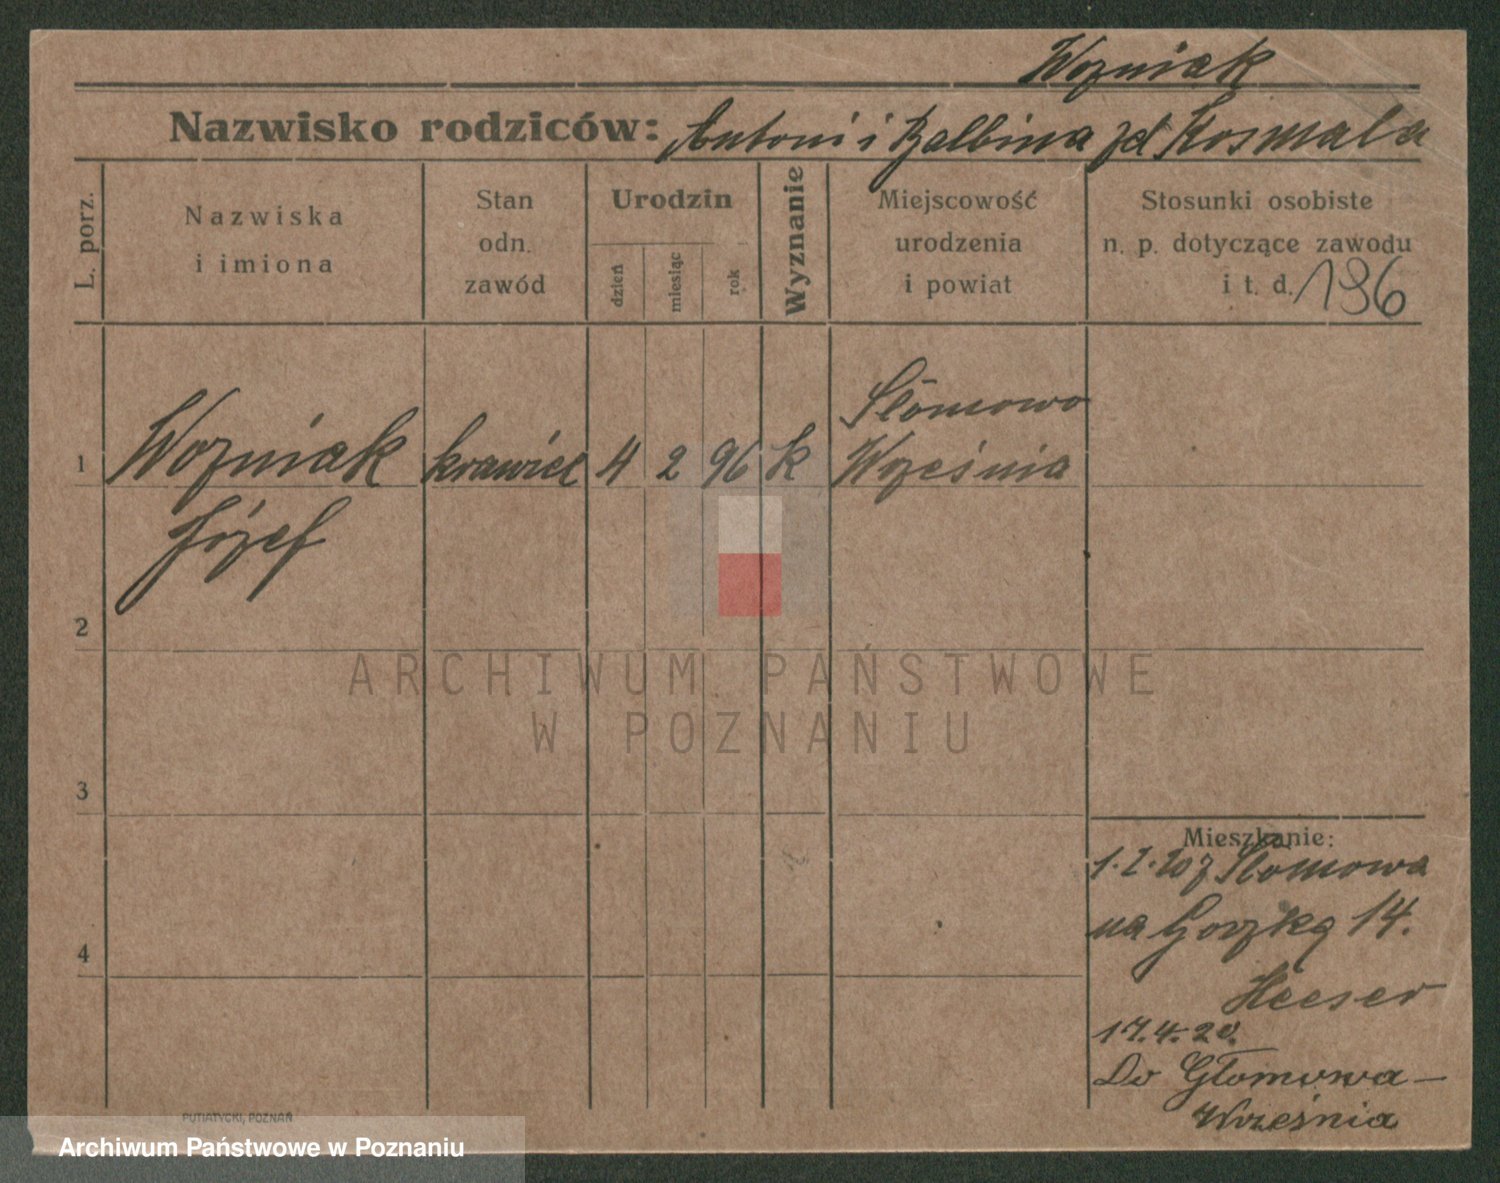 Wozniak
Nazwisko rodziców: Antoni i Balbina zd Kosmala
L. porz.
Nazwiska
i imiona
Stan
odn.
zawód
Urodzin
dzień
miesiąc
rok
Wyznanie
Miejscowość
urodzenia
i powiat
Stosunki osobiste
n. p. dotyczące zawodu
i t. d. 196
Słomowo
1 Wozniak krawiec 4 2 96 k Września
Józef
2
ARCHIWUM PAŃSTWOWE
W POZNANIU
3
Mieszkanie:
1.I.20 z Słomowa
na Gorzką 14.
4
Heeser
17.4.20.
Do Głomowa –
Września
PUTIATYCKI, POZNAŃ
Archiwum Państwowe w Poznaniu